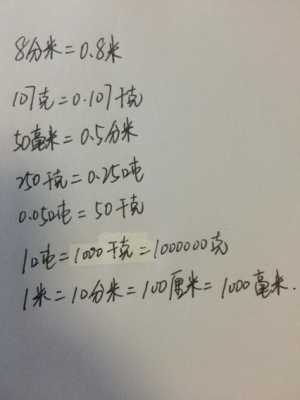 8分米=0.8米
107克=0.107千克
50毫米=0.5分米
250千克=0.250吨
0.050吨=50千克
1吨=1000千克=1000000克
1米=10分米=100厘米=1000毫米.